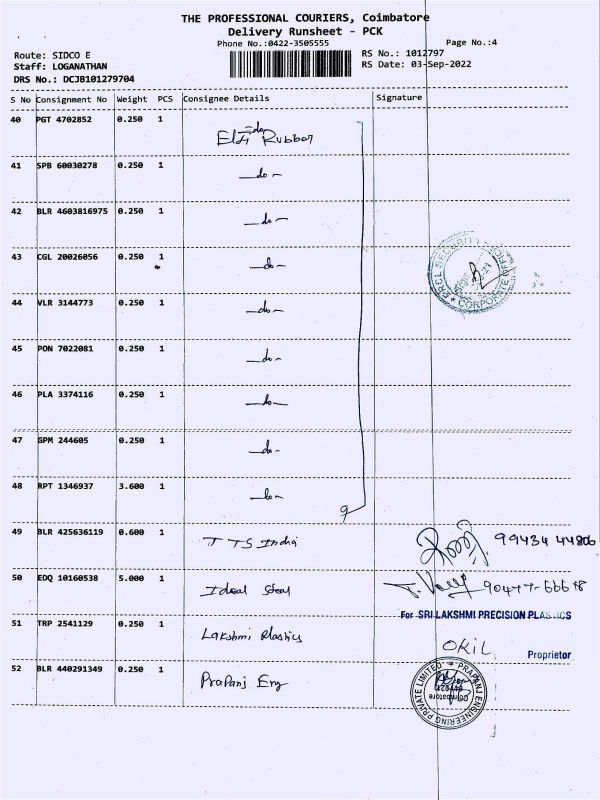 THE PROFESSIONAL COURIERS, Coimbatore
Delivery Runsheet - PCK
Phone No.:0422-3505555
Page No.:4
Route: SIDCO E
Staff: LOGANATHAN
DRS No.: DCJB101279704
RS No.: 1012797
RS Date: 03-Sep-2022
S No Consignment No Weight PCS Consignee Details Signature
40 PGT 4702852 0.250 1 Rubber
41 SPB 60030278 0.250 1 —do—
42 BLR 4603816975 0.250 1 —do—
43 CGL 20026056 0.250 1 —do—
44 VLR 3144773 0.250 1 —do—
45 PON 7022081 0.250 1 —do—
46 PLA 3374116 0.250 1 —do—
47 GPM 244605 0.250 1 —do—
48 RPT 1346937 3.600 1 —do—
9
49 BLR 425636119 0.600 1 TTS India 99434 44806
50 EDQ 10160538 5.000 1 Ideal Seal
51 TRP 2541129 0.250 1 Lakshmi Plastics
For SRI LAKSHMI PRECISION PLASTICS
Proprietor
52 BLR 440291349 0.250 1 Prapanj Eng
PRAPANJ ENGINEERING PRIVATE LIMITED
Coimbatore